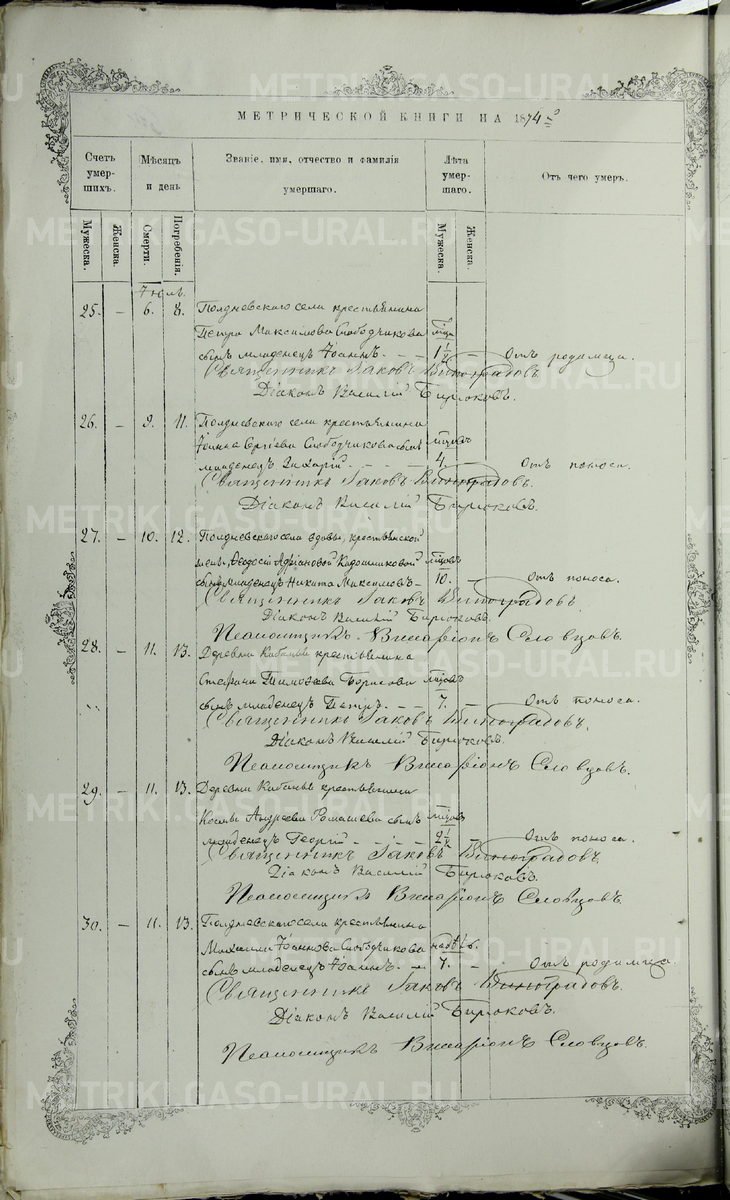 МЕТРИЧЕСКОЙ КНИГИ НА 1874 г
Счетъ умершихъ.
Мѣсяцъ и день
Званіе, имя, отчество и фамилія умершаго.
Лѣта умершаго.
Отъ чего умеръ.
Мужеска.
Женска.
Смерти.
Погребенія.
Мужеска.
Женска.
Іюль.
25. — 6. 8. Полдневскаго села крестьянина
Петра Максимова Слободчикова
сынъ младенецъ Іоаннъ. — — 1½ — Отъ родимца.
Священникъ Іаковъ Виноградовъ
Діаконъ Василій Бирюковъ.
26. — 9. 11. Полдневскаго села крестьянина
Іоанна Сергіева Слободчикова сынъ мѣсяцовъ
младенецъ — — — 4. — Отъ поноса.
Священникъ Іаковъ Виноградовъ.
Діаконъ Василій Бирюковъ.
27. — 10. 12. Полдневскаго села вдовы, крестьянской
жены, Ѳеодосіи Адріановой мѣсяцовъ
сынъ младенецъ Никита Максимовъ — 10. — Отъ поноса.
Священникъ Іаковъ Виноградовъ.
Діаконъ Василій Бирюковъ.
Псаломщикъ Виссаріонъ Словцовъ.
28. — 11. 13. Деревни Кабаньей крестьянина
Стефана Тимоѳеева Борисова мѣсяцовъ
сынъ младенецъ Петръ. — — 7. — Отъ поноса.
Священникъ Іаковъ Виноградовъ.
Діаконъ Василій Бирюковъ.
Псаломщикъ Виссаріонъ Словцовъ.
29. — 11. 13. Деревни Кабаньей крестьянина
Космы Андреева сынъ мѣсяцовъ
младенецъ Георгій — — — 2½ — Отъ поноса.
Священникъ Іаковъ Виноградовъ
Діаконъ Василій Бирюковъ.
Псаломщикъ Виссаріонъ Словцовъ.
30. — 11. 13. Полдневскаго села крестьянина
Михаила Іоаннова Слободчикова недѣль.
сынъ младенецъ Іоаннъ. — 7. — Отъ родимца.
Священникъ Іаковъ Виноградовъ.
Діаконъ Василій Бирюковъ.
Псаломщикъ Виссаріонъ Словцовъ.
METRIKI.GASO-URAL.RU